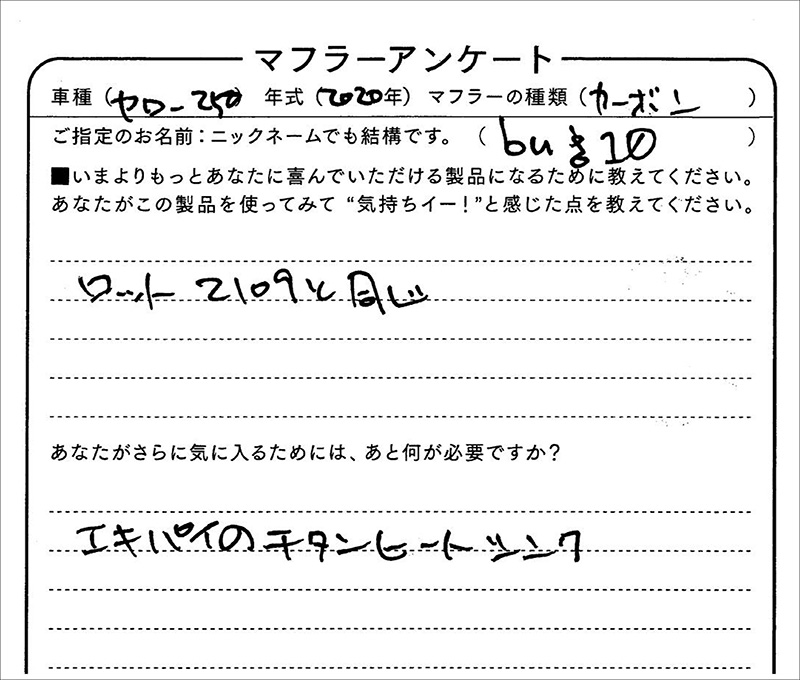 マフラーアンケート
車種（セロー250 年式（2020年）マフラーの種類（カーボン ）
ご指定のお名前：ニックネームでも結構です。（ buき10 ）
■いまよりもっとあなたに喜んでいただける製品になるために教えてください。
あなたがこの製品を使ってみて “気持ちイー！”と感じた点を教えてください。
ロット2109と同じ
あなたがさらに気に入るためには、あと何が必要ですか？
エキパイのチタンヒートシンク